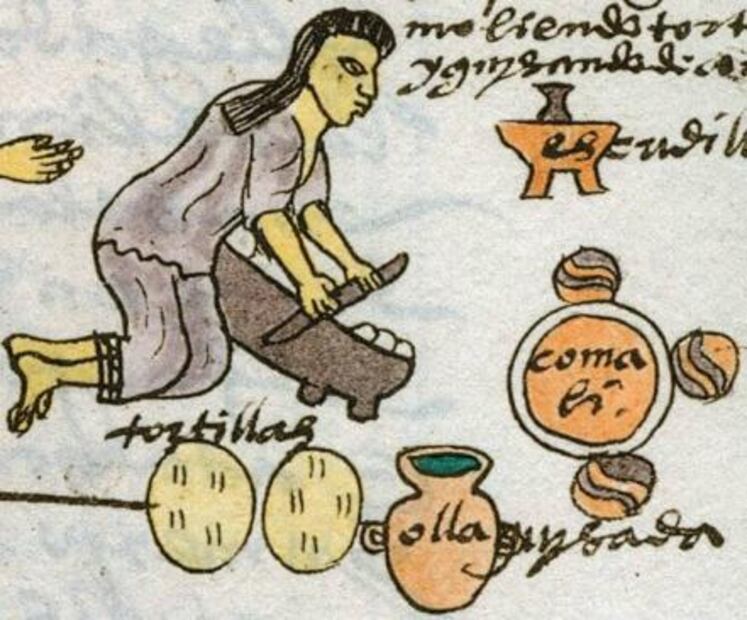 moliendo tort
y guysando de
escudill
coma
li.
tortillas
olla guysada